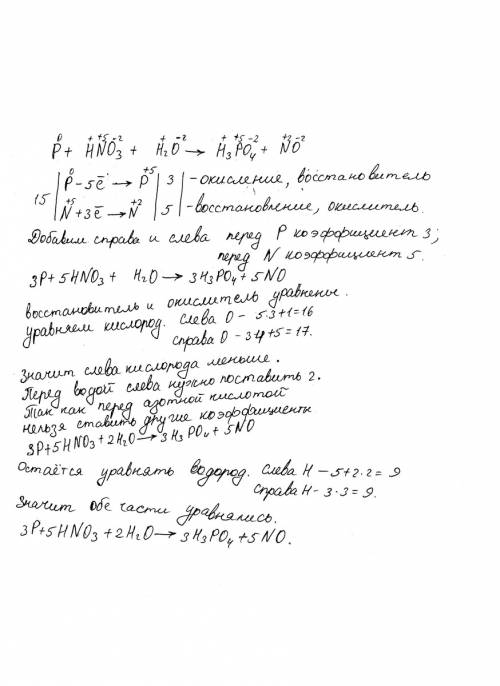 P⁰ + H⁺N⁺⁵O₃⁻² + H₂⁺O⁻² → H₃⁺P⁺⁵O₄⁻² + N⁺²O⁻²
15 | P⁰ - 5ē → P⁺⁵ | 3 | - окисление, восстановитель
N⁺⁵ + 3ē → N⁺² | 5 | - восстановление, окислитель.
Добавим справа и слева перед P коэффициент 3;
перед N коэффициент 5.
3P + 5HNO₃ + H₂O → 3H₃PO₄ + 5NO
восстановитель и окислитель уравнены.
уравняем кислород. слева O - 5·3+1=16
справа O - 3·4+5=17.
Значит слева кислорода меньше.
Перед водой слева нужно поставить 2.
Так как перед азотной кислотой
нельзя ставить другие коэффициенты
3P + 5HNO₃ + 2H₂O → 3H₃PO₄ + 5NO
Остаётся уравнять водород. слева H - 5+2·2=9
справа H - 3·3=9.
Значит обе части уравнялись.
3P + 5HNO₃ + 2H₂O → 3H₃PO₄ + 5NO.